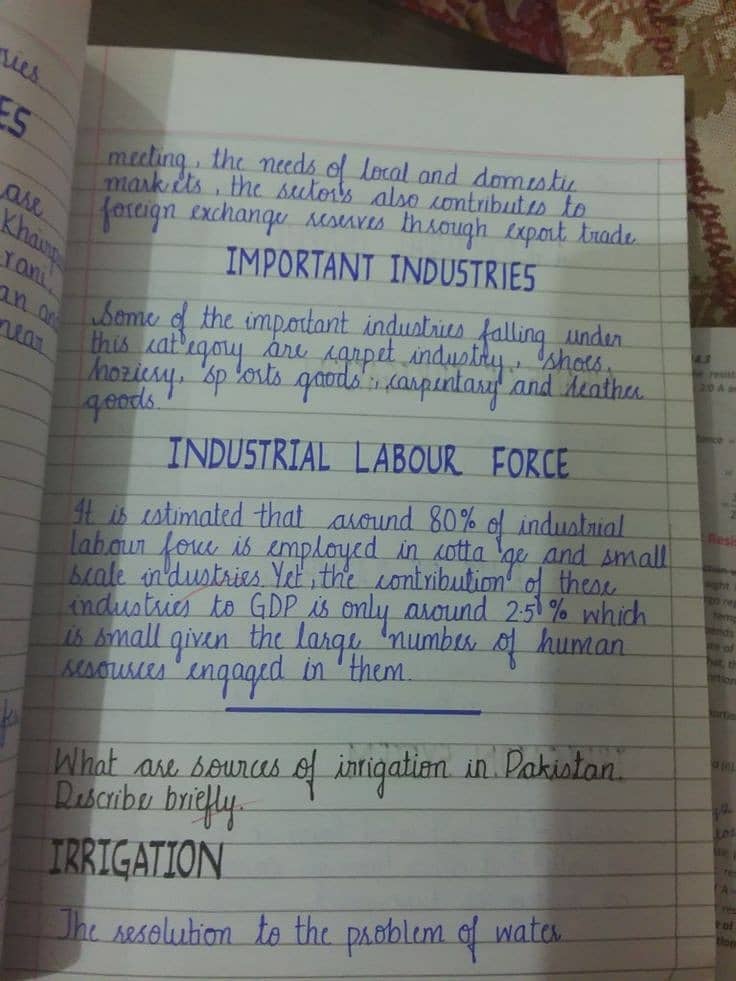 ries
ES
ase
Khairp
rani.
an an
near
meeting, the needs of local and domestic
markets, the sectors also contributes to
foreign exchange reserves through export trade
IMPORTANT INDUSTRIES
Some of the important industries falling under
this category are carpet industry, shoes,
hoziery, sports goods, carpentary and leather
goods.
INDUSTRIAL LABOUR FORCE
It is estimated that around 80% of industrial
labour force is employed in cottage and small
scale industries. Yet, the contribution of these
industries to GDP is only around 2.5% which
is small given the large number of human
resources engaged in them.
What are sources of irrigation in Pakistan.
Describe briefly.
IRRIGATION
The resolution to the problem of water